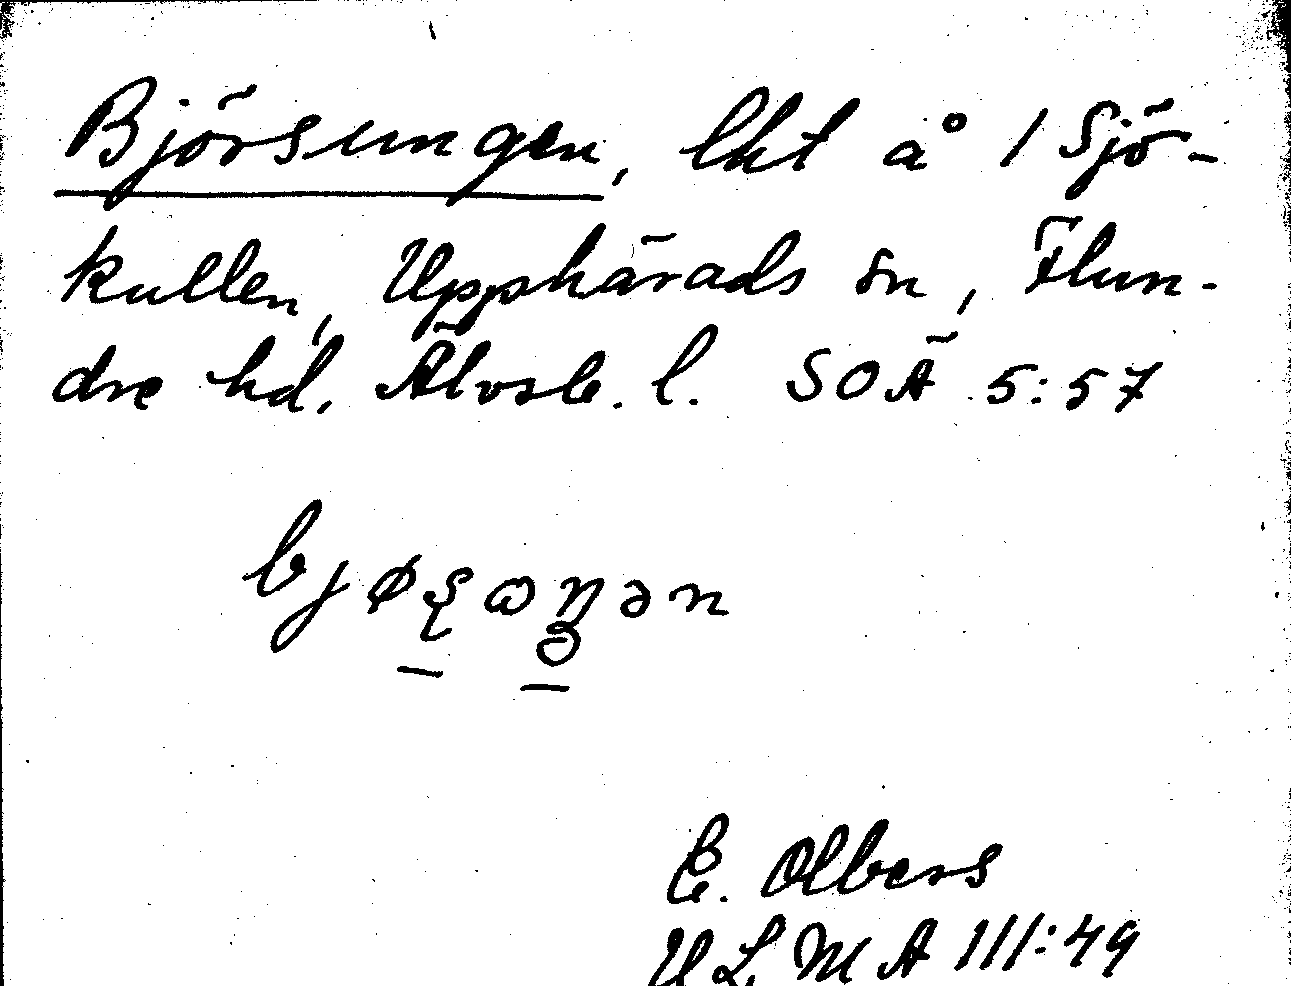 Björsungen, lht å 1 Sjö-
kullen, Upphärads sn, Flun-
dre hd. Älvsb. l. SOÄ 5:57
E. Olbers
ULMA 111:49